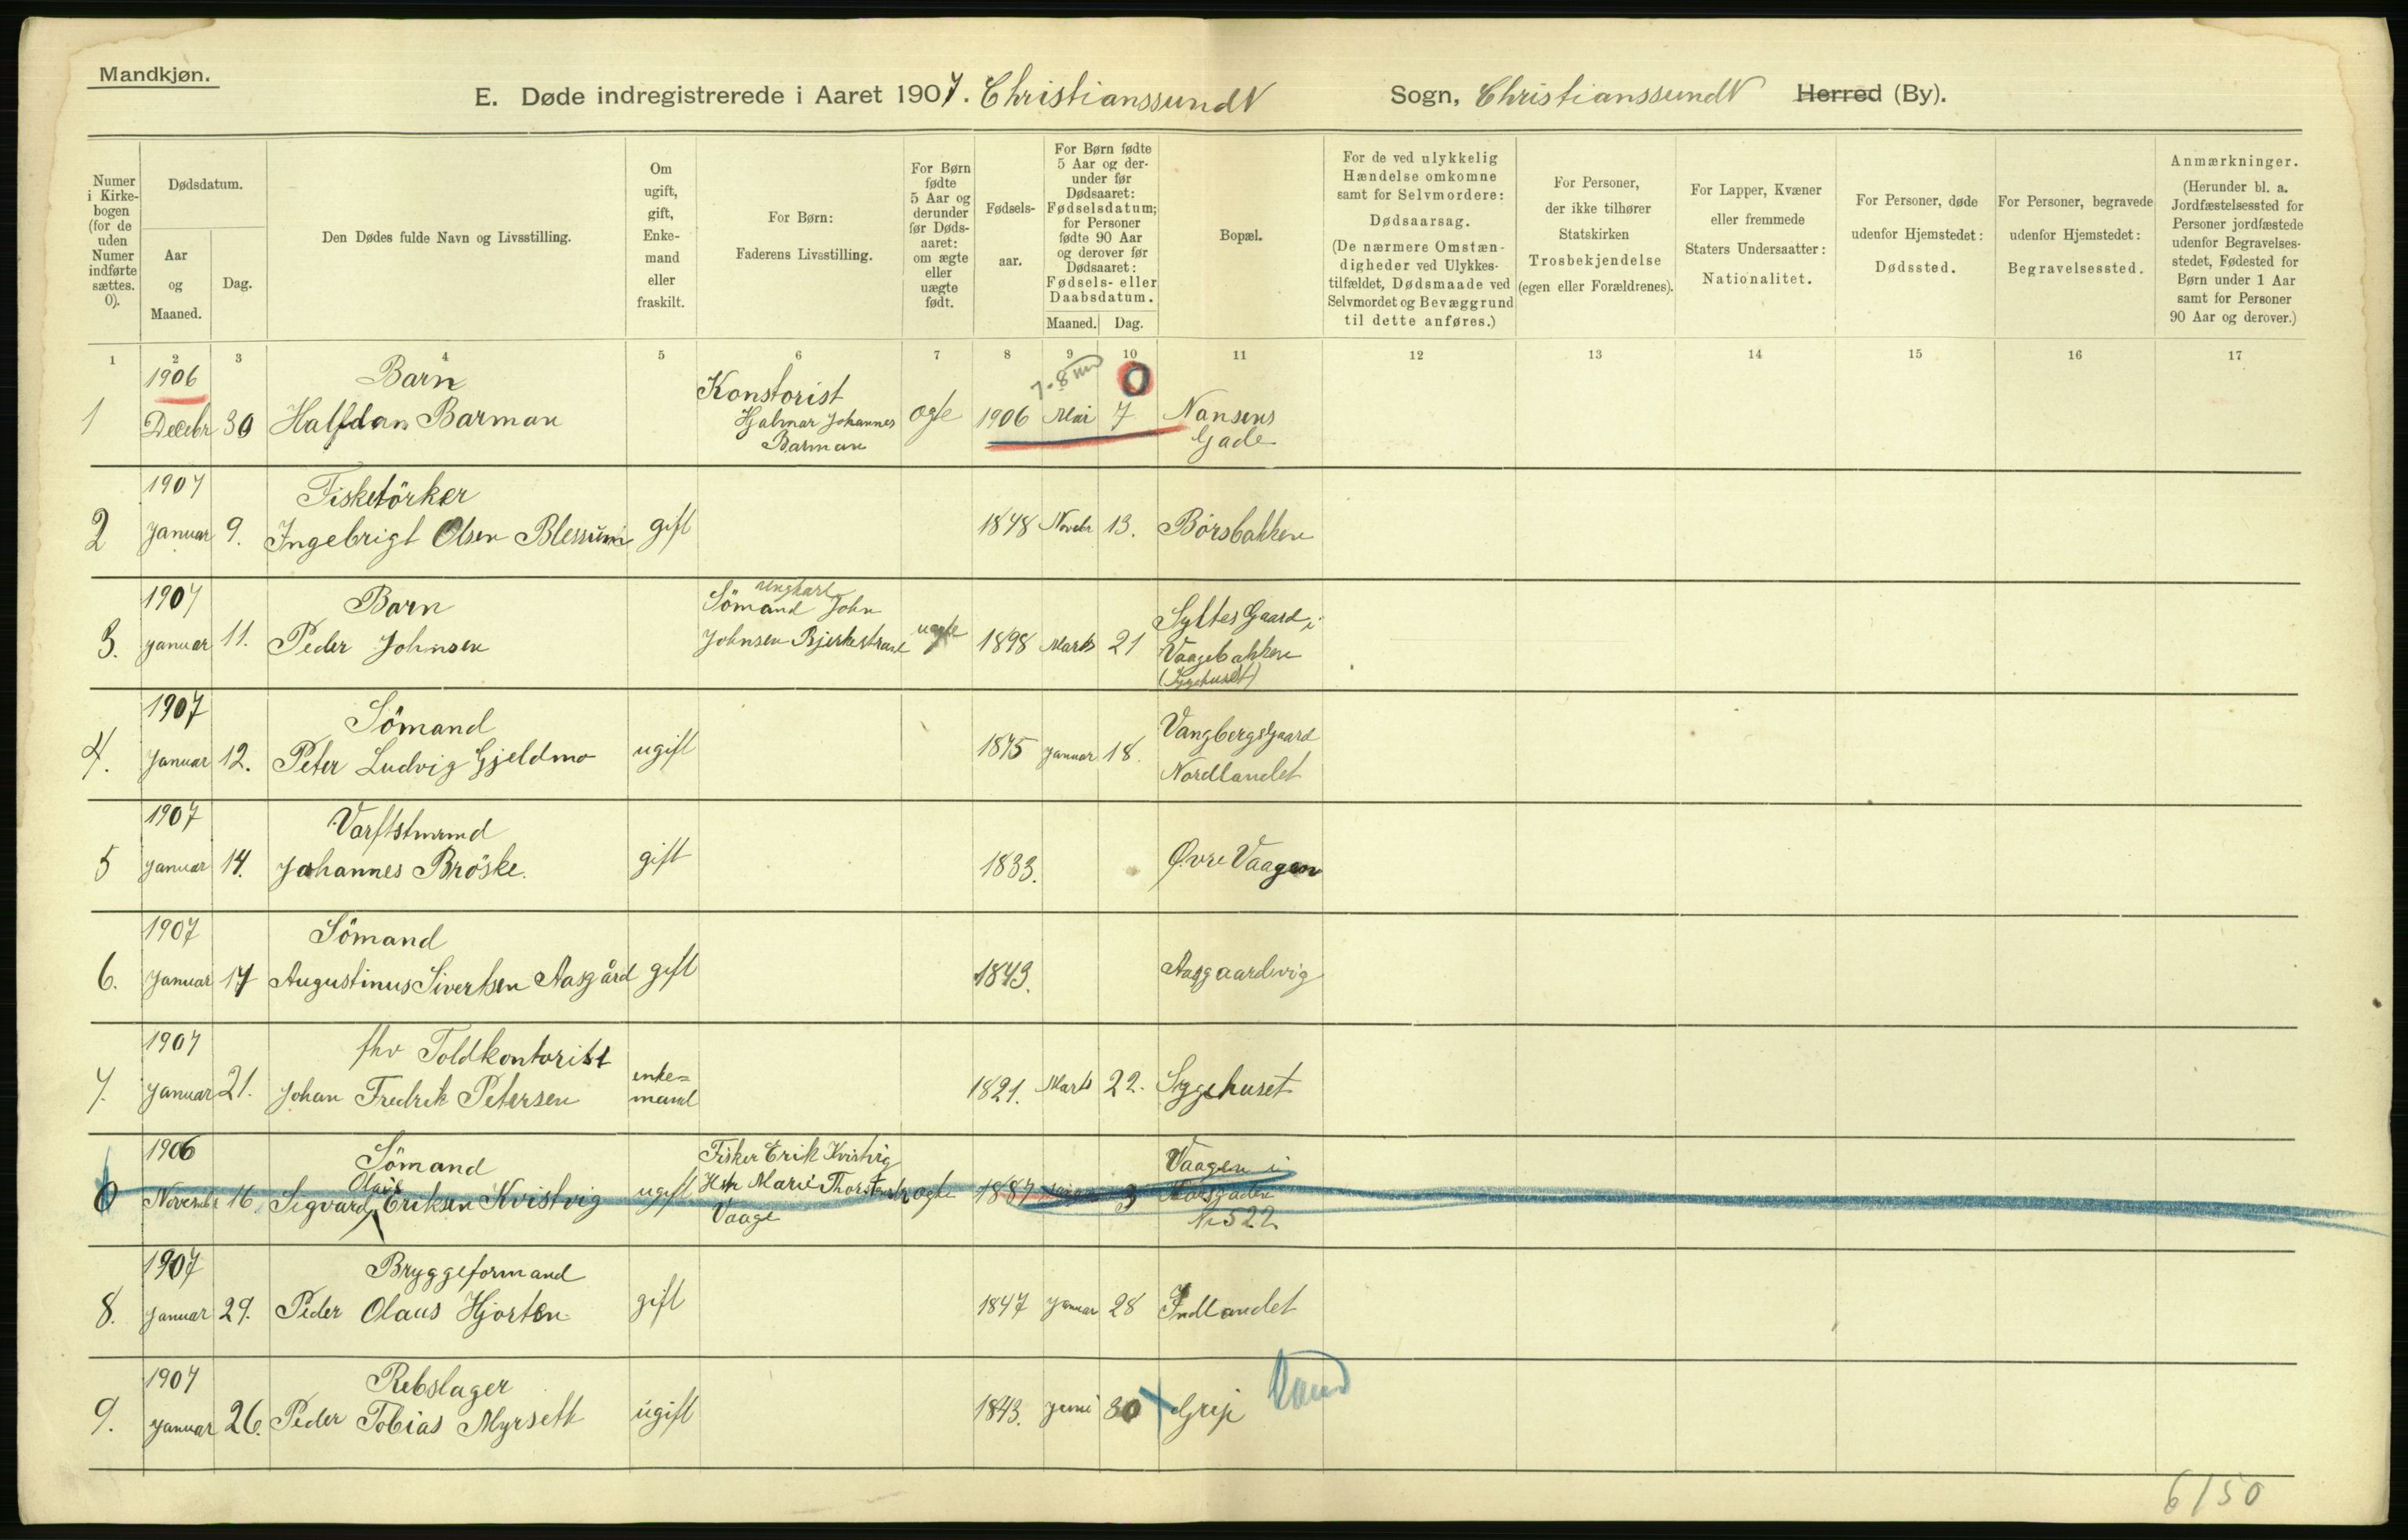 Mandkjøn.
E. Døde indregistrerede i Aaret 1907. Christianssund N Sogn, Christianssund N Herred (By).
Numer i Kirkebogen (for de uden Numer indførte sættes. 0).
Dødsdatum.
Aar og Maaned.
Dag.
Den Dødes fulde Navn og Livsstilling.
Om ugift, gift, Enkemand eller fraskilt.
For Børn: Faderens Livsstilling.
For Børn fødte 5 Aar og derunder før Dødsaaret: om ægte eller uægte født.
Fødselsaar.
For Børn fødte 5 Aar og derunder før Dødsaaret: Fødselsdatum; for Personer fødte 90 Aar og derover før Dødsaaret: Fødsels- eller Daabsdatum.
Maaned. Dag.
Bopæl.
For de ved ulykkelig Hændelse omkomne samt for Selvmordere: Dødsaarsag. (De nærmere Omstændigheder ved Ulykkestilfældet, Dødsmaade ved Selvmordet og Bevæggrund til dette anføres.)
For Personer, der ikke tilhører Statskirken Trosbekjendelse (egen eller Forældrenes).
For Lapper, Kvæner eller fremmede Staters Undersaatter: Nationalitet.
For Personer, døde udenfor Hjemstedet: Dødssted.
For Personer, begravede udenfor Hjemstedet: Begravelsessted.
Anmærkninger. (Herunder bl. a. Jordfæstelsessted for Personer jordfæstede udenfor Begravelsesstedet, Fødested for Børn under 1 Aar samt for Personer 90 Aar og derover.)
1 2 3 4 5 6 7 8 9 10 11 12 13 14 15 16 17
1906 Barn Konstorist 7-8 md 0
1 Decebr 30 Halfdan Barman Hjalmar Johannes Barman ogte 1906 Mai 7 Nansens Gade
1907 Fisketörker
2 Januar 9. Ingebrigt Olsen Blessum gift 1848 Novebr 13. Börsbakken
1907 Barn ungkarl Sömand John
3. Januar 11. Peder Johnsen Johnsen Bjerkestrand uogte 1898 Marts 21 Syltes Gaard i Vaagebakken (Sygehuset)
1907 Sömand
4. Januar 12. Peter Ludvig Gjeldmo ugift 1875 Januar 18. Vangbergs Gaard Nordlandet
1907 Varftsmand
5 Januar 14. Johannes Bröske. gift 1833. Øvre Vaagen
1907 Sömand
6. Januar 17 Augustinus Sivertsen Aasgård gift 1843. Aasgaardsvig
1907 fhv Toldkontorist
7. Januar 21. Johan Fredrik Petersen enke=mand 1821. Marts 22. Sygehuset
1906 Sömand Fisker Erik Kvistvig
0 Novembr 16. Sigvard Olaus Eriksen Kvistvig ugift Marie Vaage ogte 1887 3 Vaagen i No 522
1907 Bryggeformand
8. Januar 29. Peder Olaus Hjorten gift 1847 Januar 28 Indlandet
1907 Rebslager
9. Januar 26. Peder Tobias Myrseth ugift 1843. Juni 30 Grip
6/50